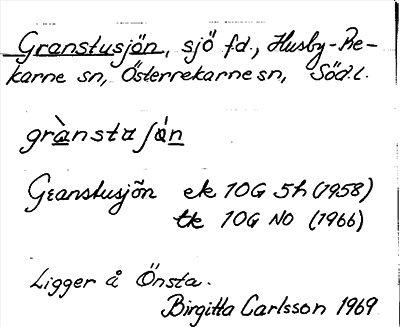 Granstusjön, sjö fd., Husby-Re-
karne sn, Österrekarne sn, Söd.l.
grànsta ʃǿn
Granstusjön ek 10G 5h (1958)
tk 10G NO (1966)
Ligger å Önsta.
Birgitta Carlsson 1969